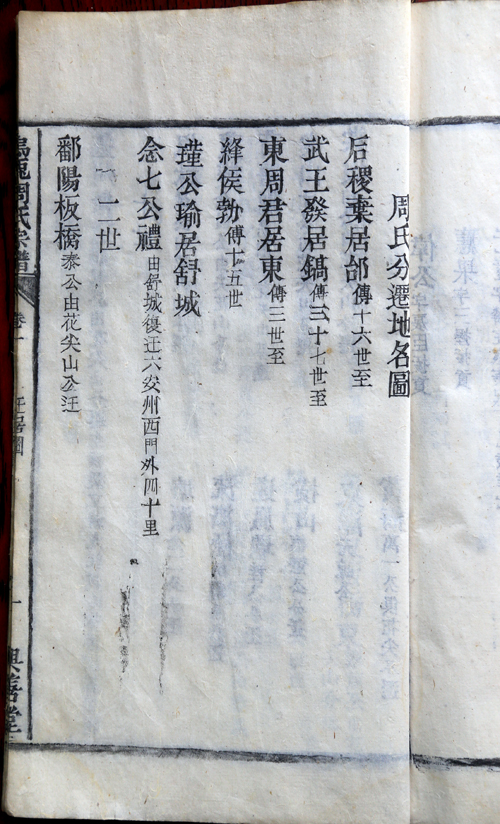 周氏分遷地名圖
后稷棄居邰傳十六世至
武王發居鎬傳三十七世至
東周君居東傳三世至
絳侯勃傳十五世
瑾公瑜居舒城
念七公禮由舒城復迁六安州西門外四十里
二世
鄱陽板橋泰公由花尖山公迁
周氏宗譜
卷一
迁居圖
一
興善堂